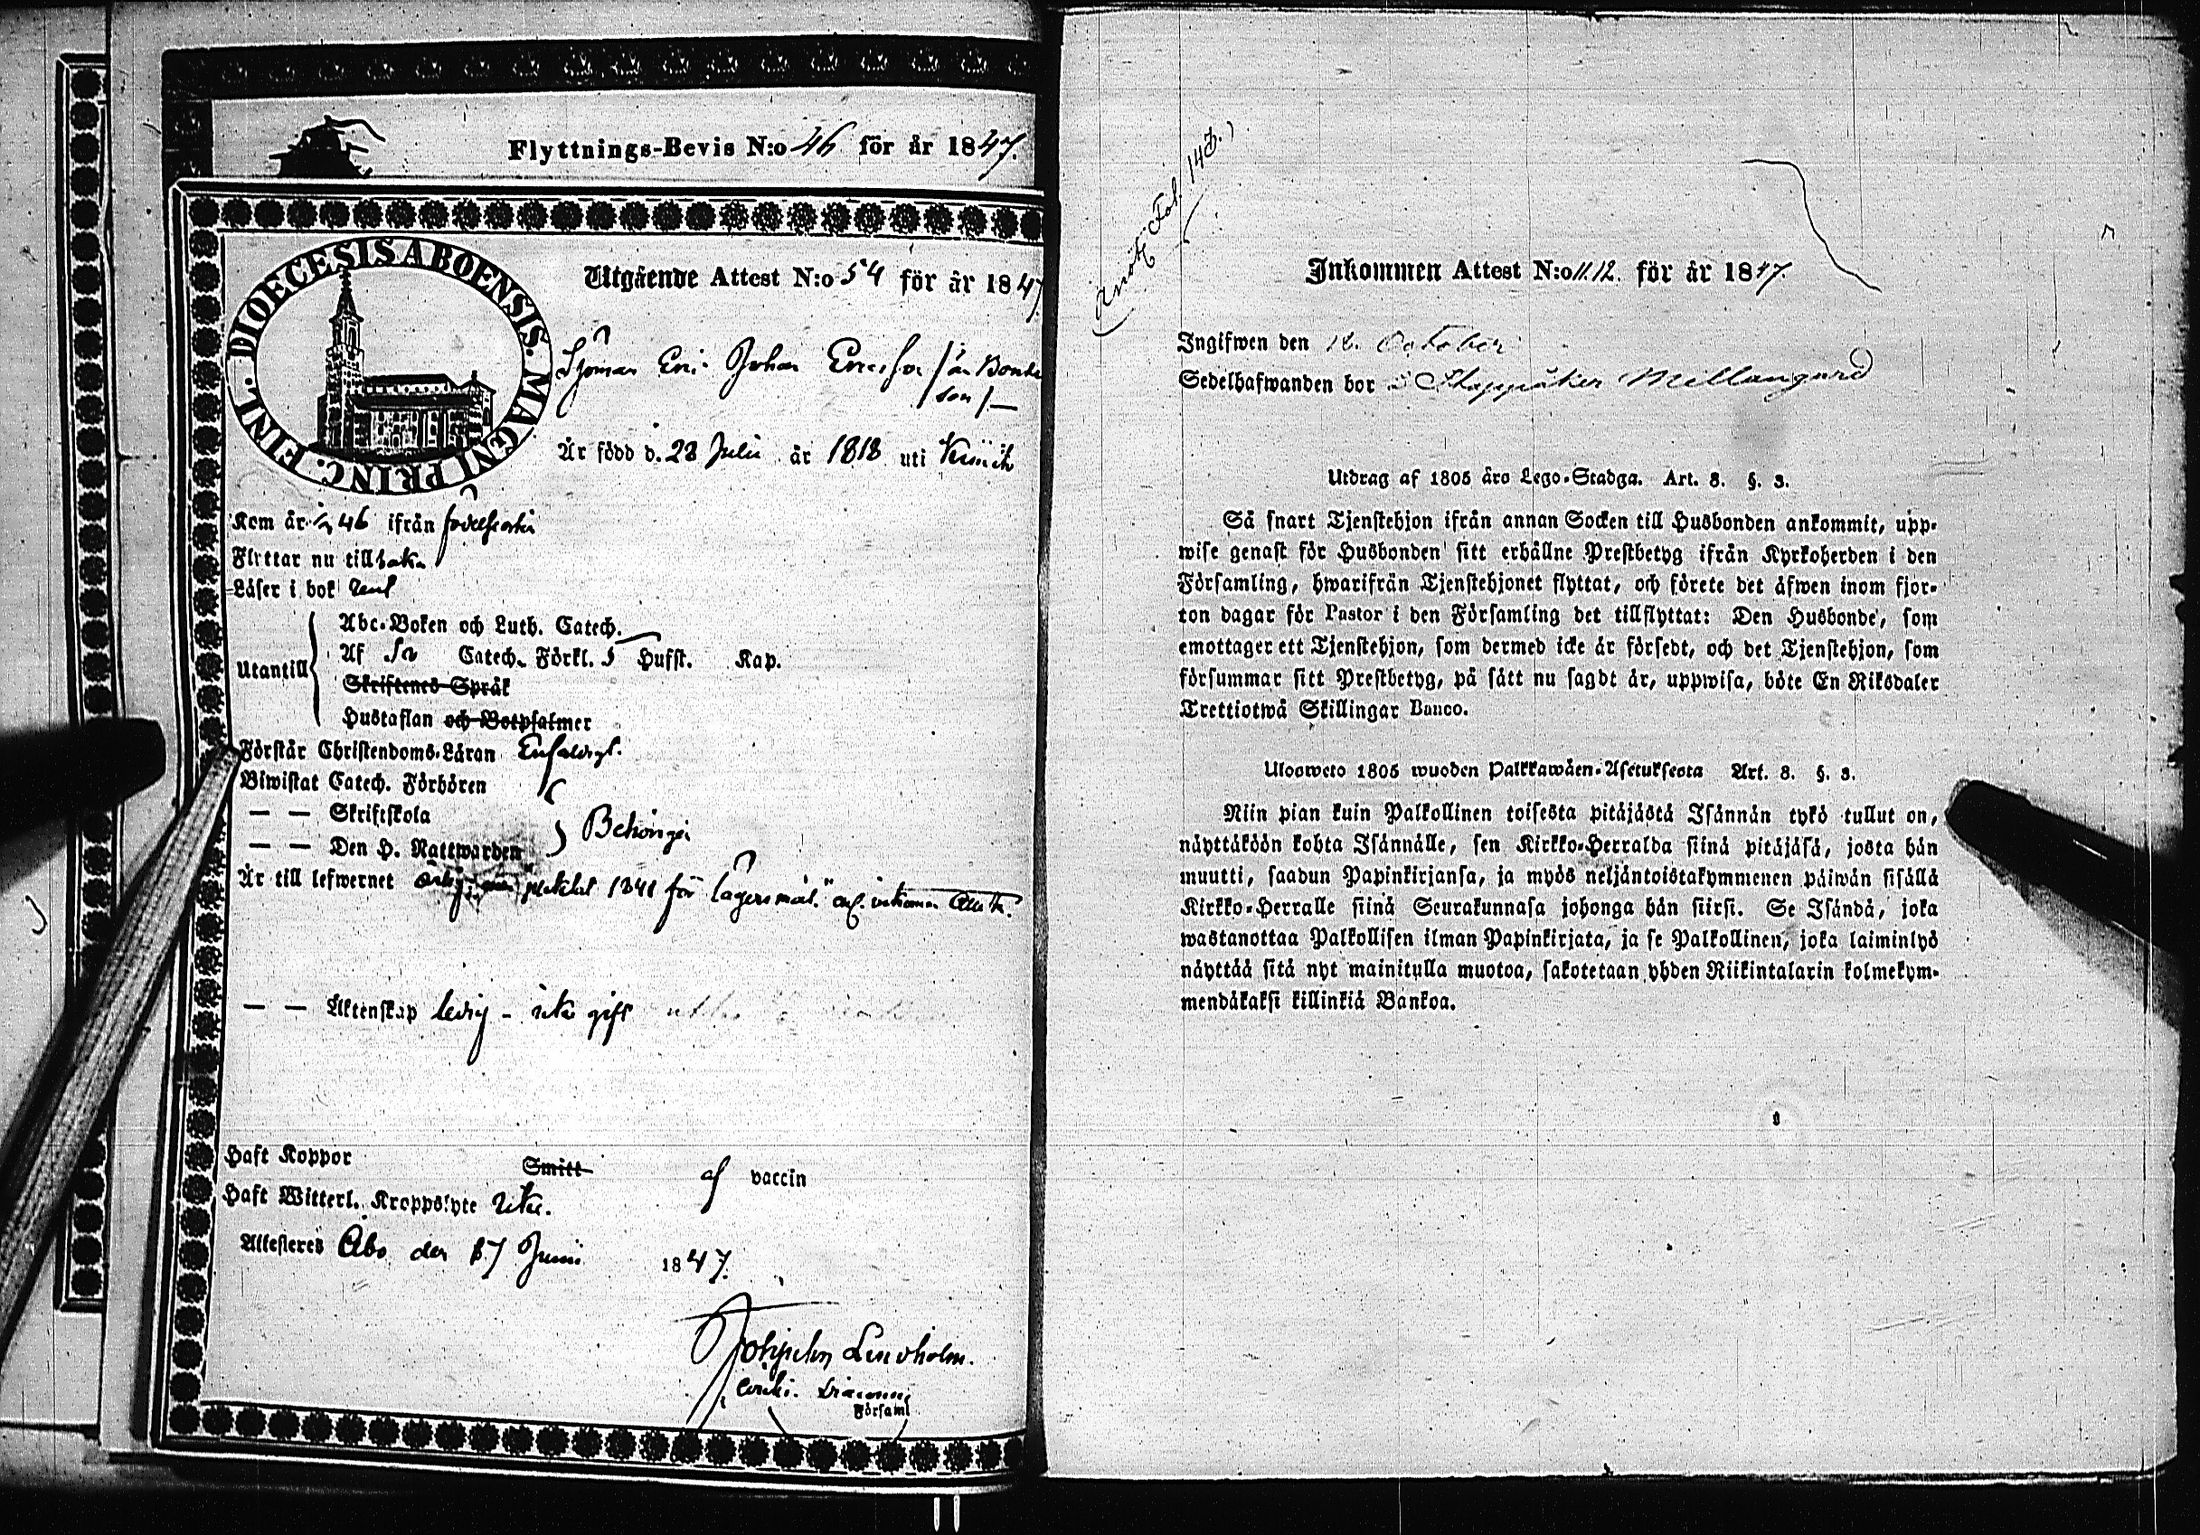 Flyttnings-Bevis N:o 46 för år 1847.
DIOECESIS ABOENSIS. MAGNI PRINC. FINL.
Utgående Attest N:o 54 för år 1847
Sjöman Johan
son
Är född d. 28 Julii år 1818 uti
Kom år 1846 ifrån
Flyttar nu tillbaka
Läser i bok
Utantill
Abc-Boken och Luth. Catech.
Af Catech. Förkl. 5 Hufst. Kap.
Skriftenes Språk
Hustaflan och Botpsalmer
Förstår Christendoms-Läran Enfaldigt.
Biwistat Catech. Förhören
— — Skriftskola
— — Den H. Nattwarden
Behörigen
Är till lefwernet 1841 för lägersmål.
— — Äktenskap ledig - icke gift
Haft Koppor Smitt af vaccin
Haft Witterl. Kroppslyte icke.
Attesteras Åbo den 17 Junii 1847.
Lindholm.
Församl.
Fol. 143.
Inkommen Attest N:o 11.12. för år 1847.
Ingifwen den 12. October
Sedelhafwanden bor Mellangård
Utdrag af 1805 års Lego-Stadga. Art. 8. §. 3.
Så snart Tjenstehjon ifrån annan Socken till Husbonden ankommit, upp-
wise genast för Husbonden sitt erhållne Prestbetyg ifrån Kyrkoherden i den
Församling, hwarifrån Tjenstehjonet flyttat, och förete det äfwen inom fjor-
ton dagar för Pastor i den Församling det tillflyttat: Den Husbonde, som
emottager ett Tjenstehjon, som dermed icke är försedt, och det Tjenstehjon, som
försummar sitt Prestbetyg, på sätt nu sagdt är, uppwisa, böte En Riksdaler
Trettiotwå Skillingar Banco.
Ulosweto 1805 wuoden Palkkawäen-Asetuksesta Art. 8. §. 3.
Niin pian kuin Palkollinen toisesta pitäjästä Isännän tykö tullut on,
näyttäköön kohta Isännälle, sen Kirkko-Herralda siinä pitäjäsä, josta hän
muutti, saadun Papinkirjansa, ja myös neljäntoistakymmenen päiwän sisällä
Kirkko-Herralle siinä Seurakunnasa johonga hän siirsi. Se Isändä, joka
wastanottaa Palkollisen ilman Papinkirjata, ja se Palkollinen, joka laiminlyö
näyttää sitä nyt mainitulla muotoa, sakotetaan yhden Riikintalarin kolmekym-
mendäkaksi killinkiä Bankoa.